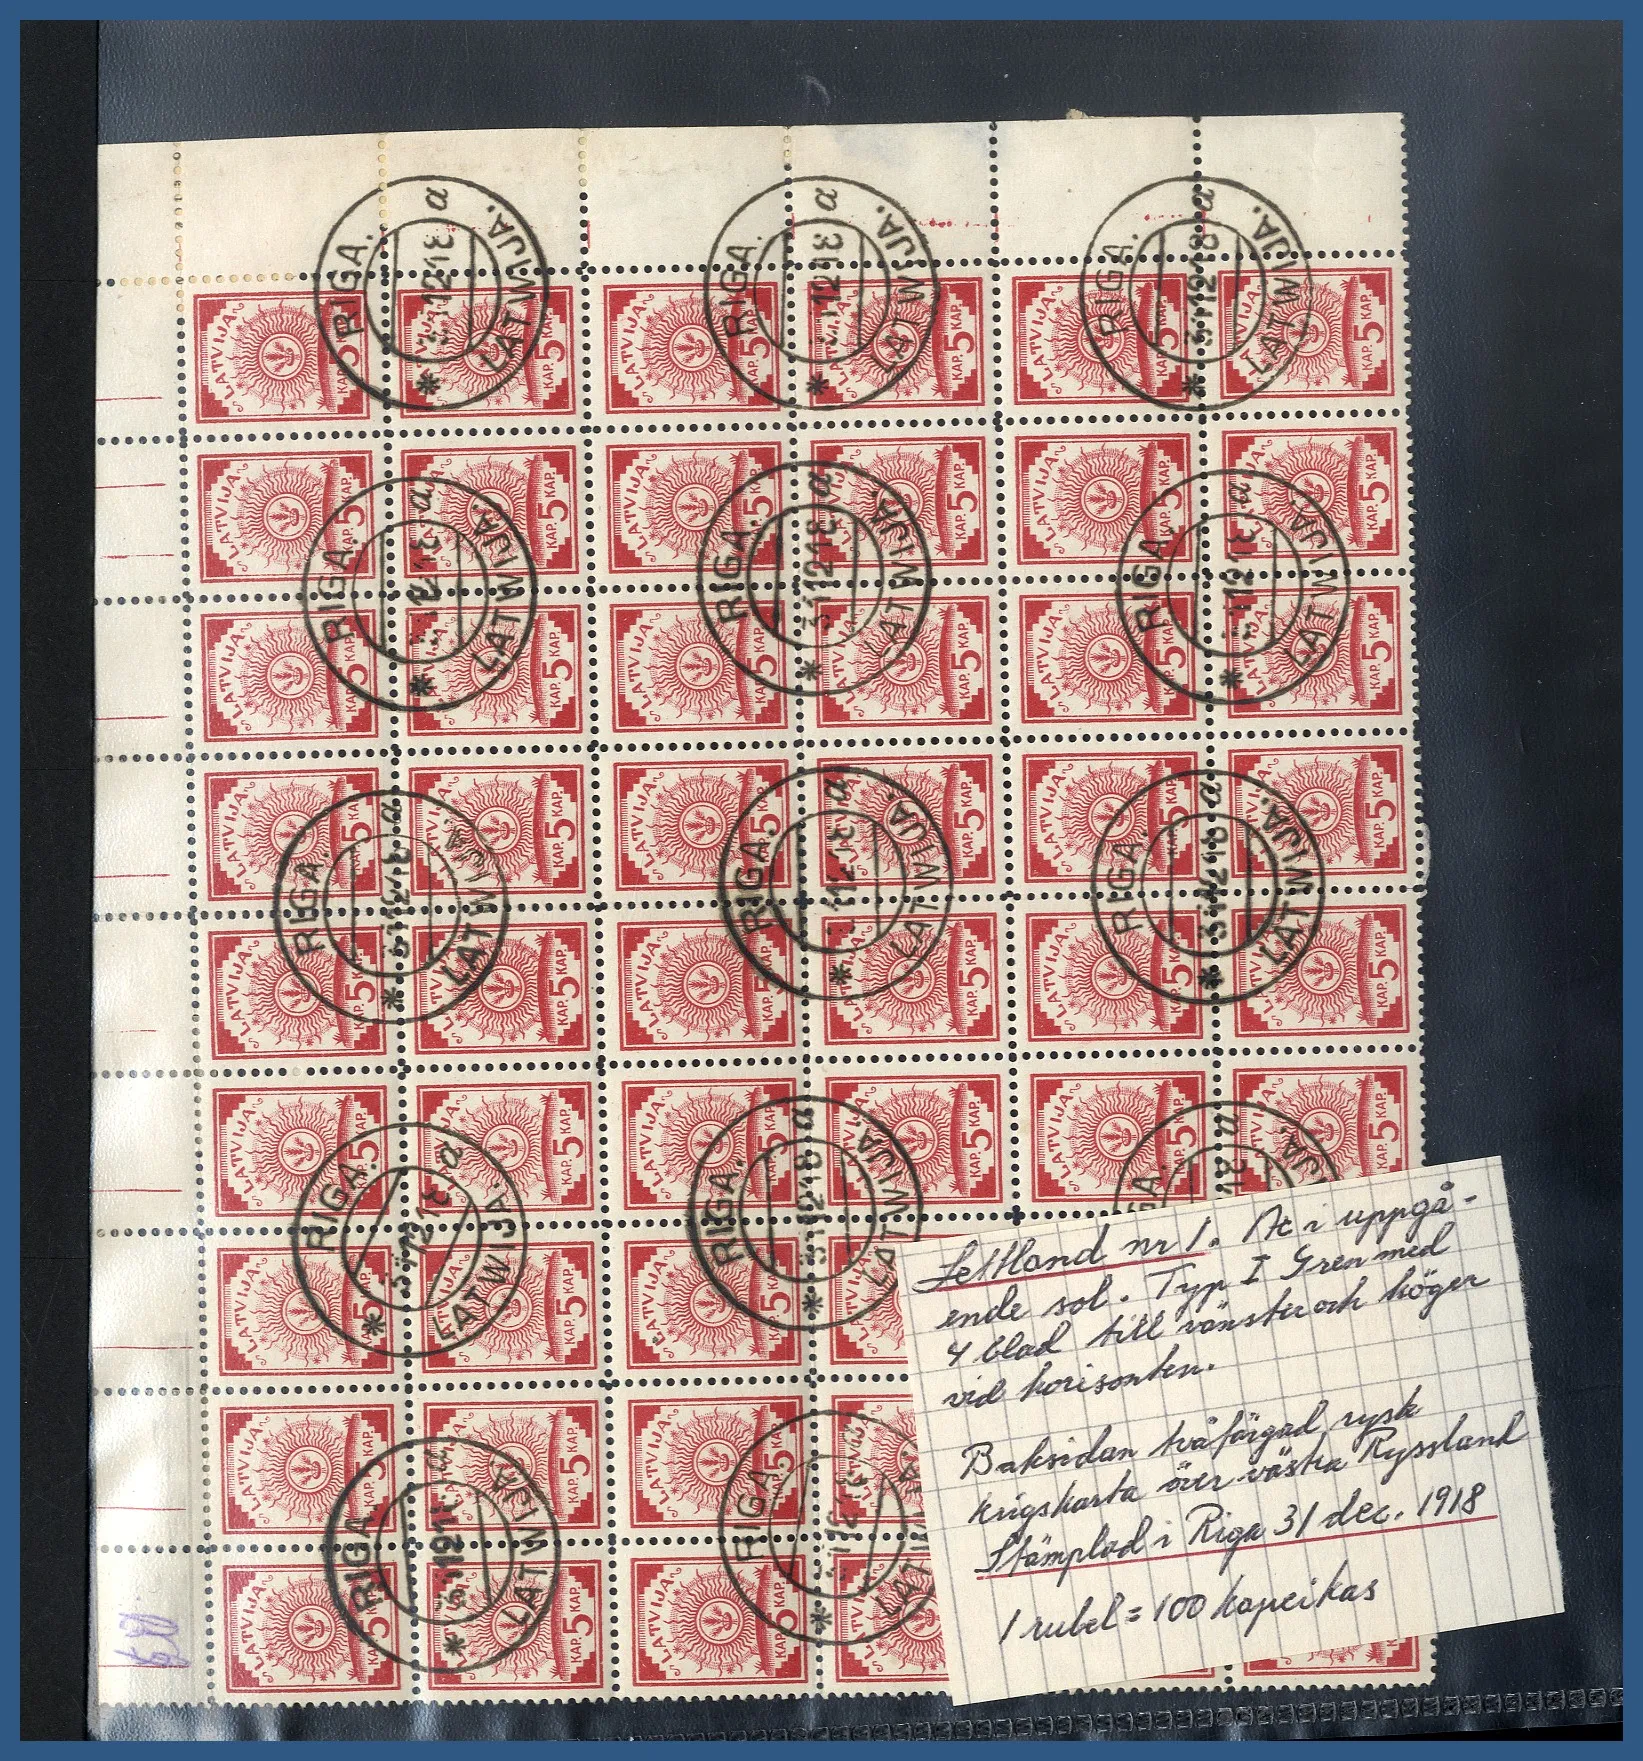 RIGA. LATWIJA. 31 12 18 a *
LATVIJA
5 KAP.
Lettland nr 1. Ax i uppgå-
ende sol. Typ I Gren med
4 blad till vänster och höger
vid horisonten.
Baksidan tvåfärgad rysk
krigskarta över västra Ryssland
Stämplad i Riga 31 dec. 1918
1 rubel = 100 kapeikas